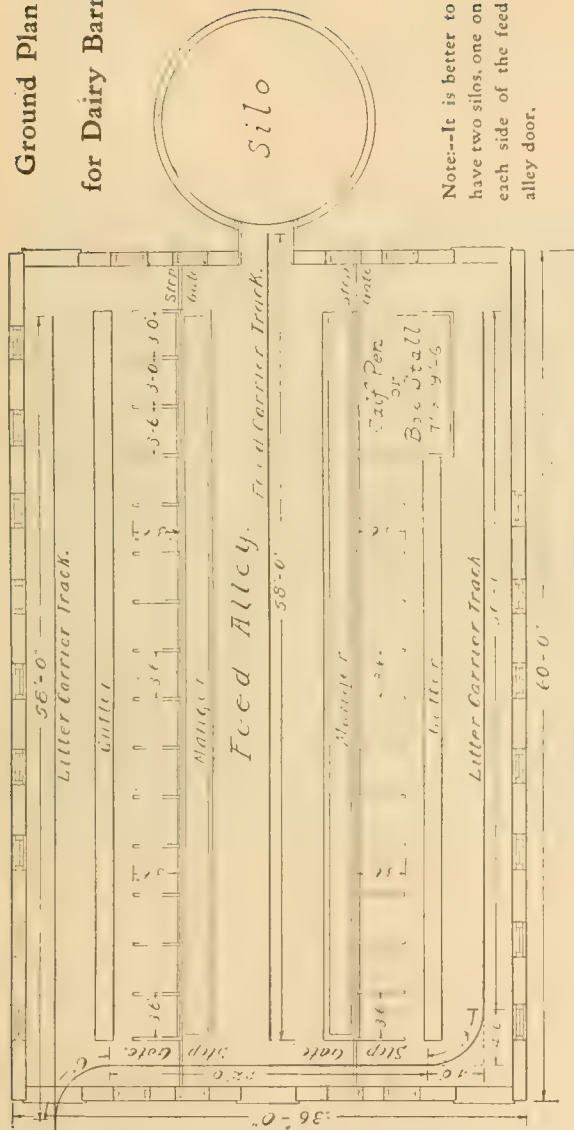 Ground Plan
for Dairy Barn
Silo
Note:--It is better to
have two silos, one on
each side of the feed
alley door.
58'-0"
Litter Carrier Track.
Gutter
3-6 3-0 3'0"
3'6
3'6
Step
Gate
Manger
Feed Alley.
Feed Carrier Track.
58'-0"
Step
Gate
Manger
Calf Pen
or
Box Stall
7' x 9'-6
3'6
3'6
Gutter
Litter Carrier Track
Step Gate
Step Gate
Step Gate
36'-0"
60'-0"